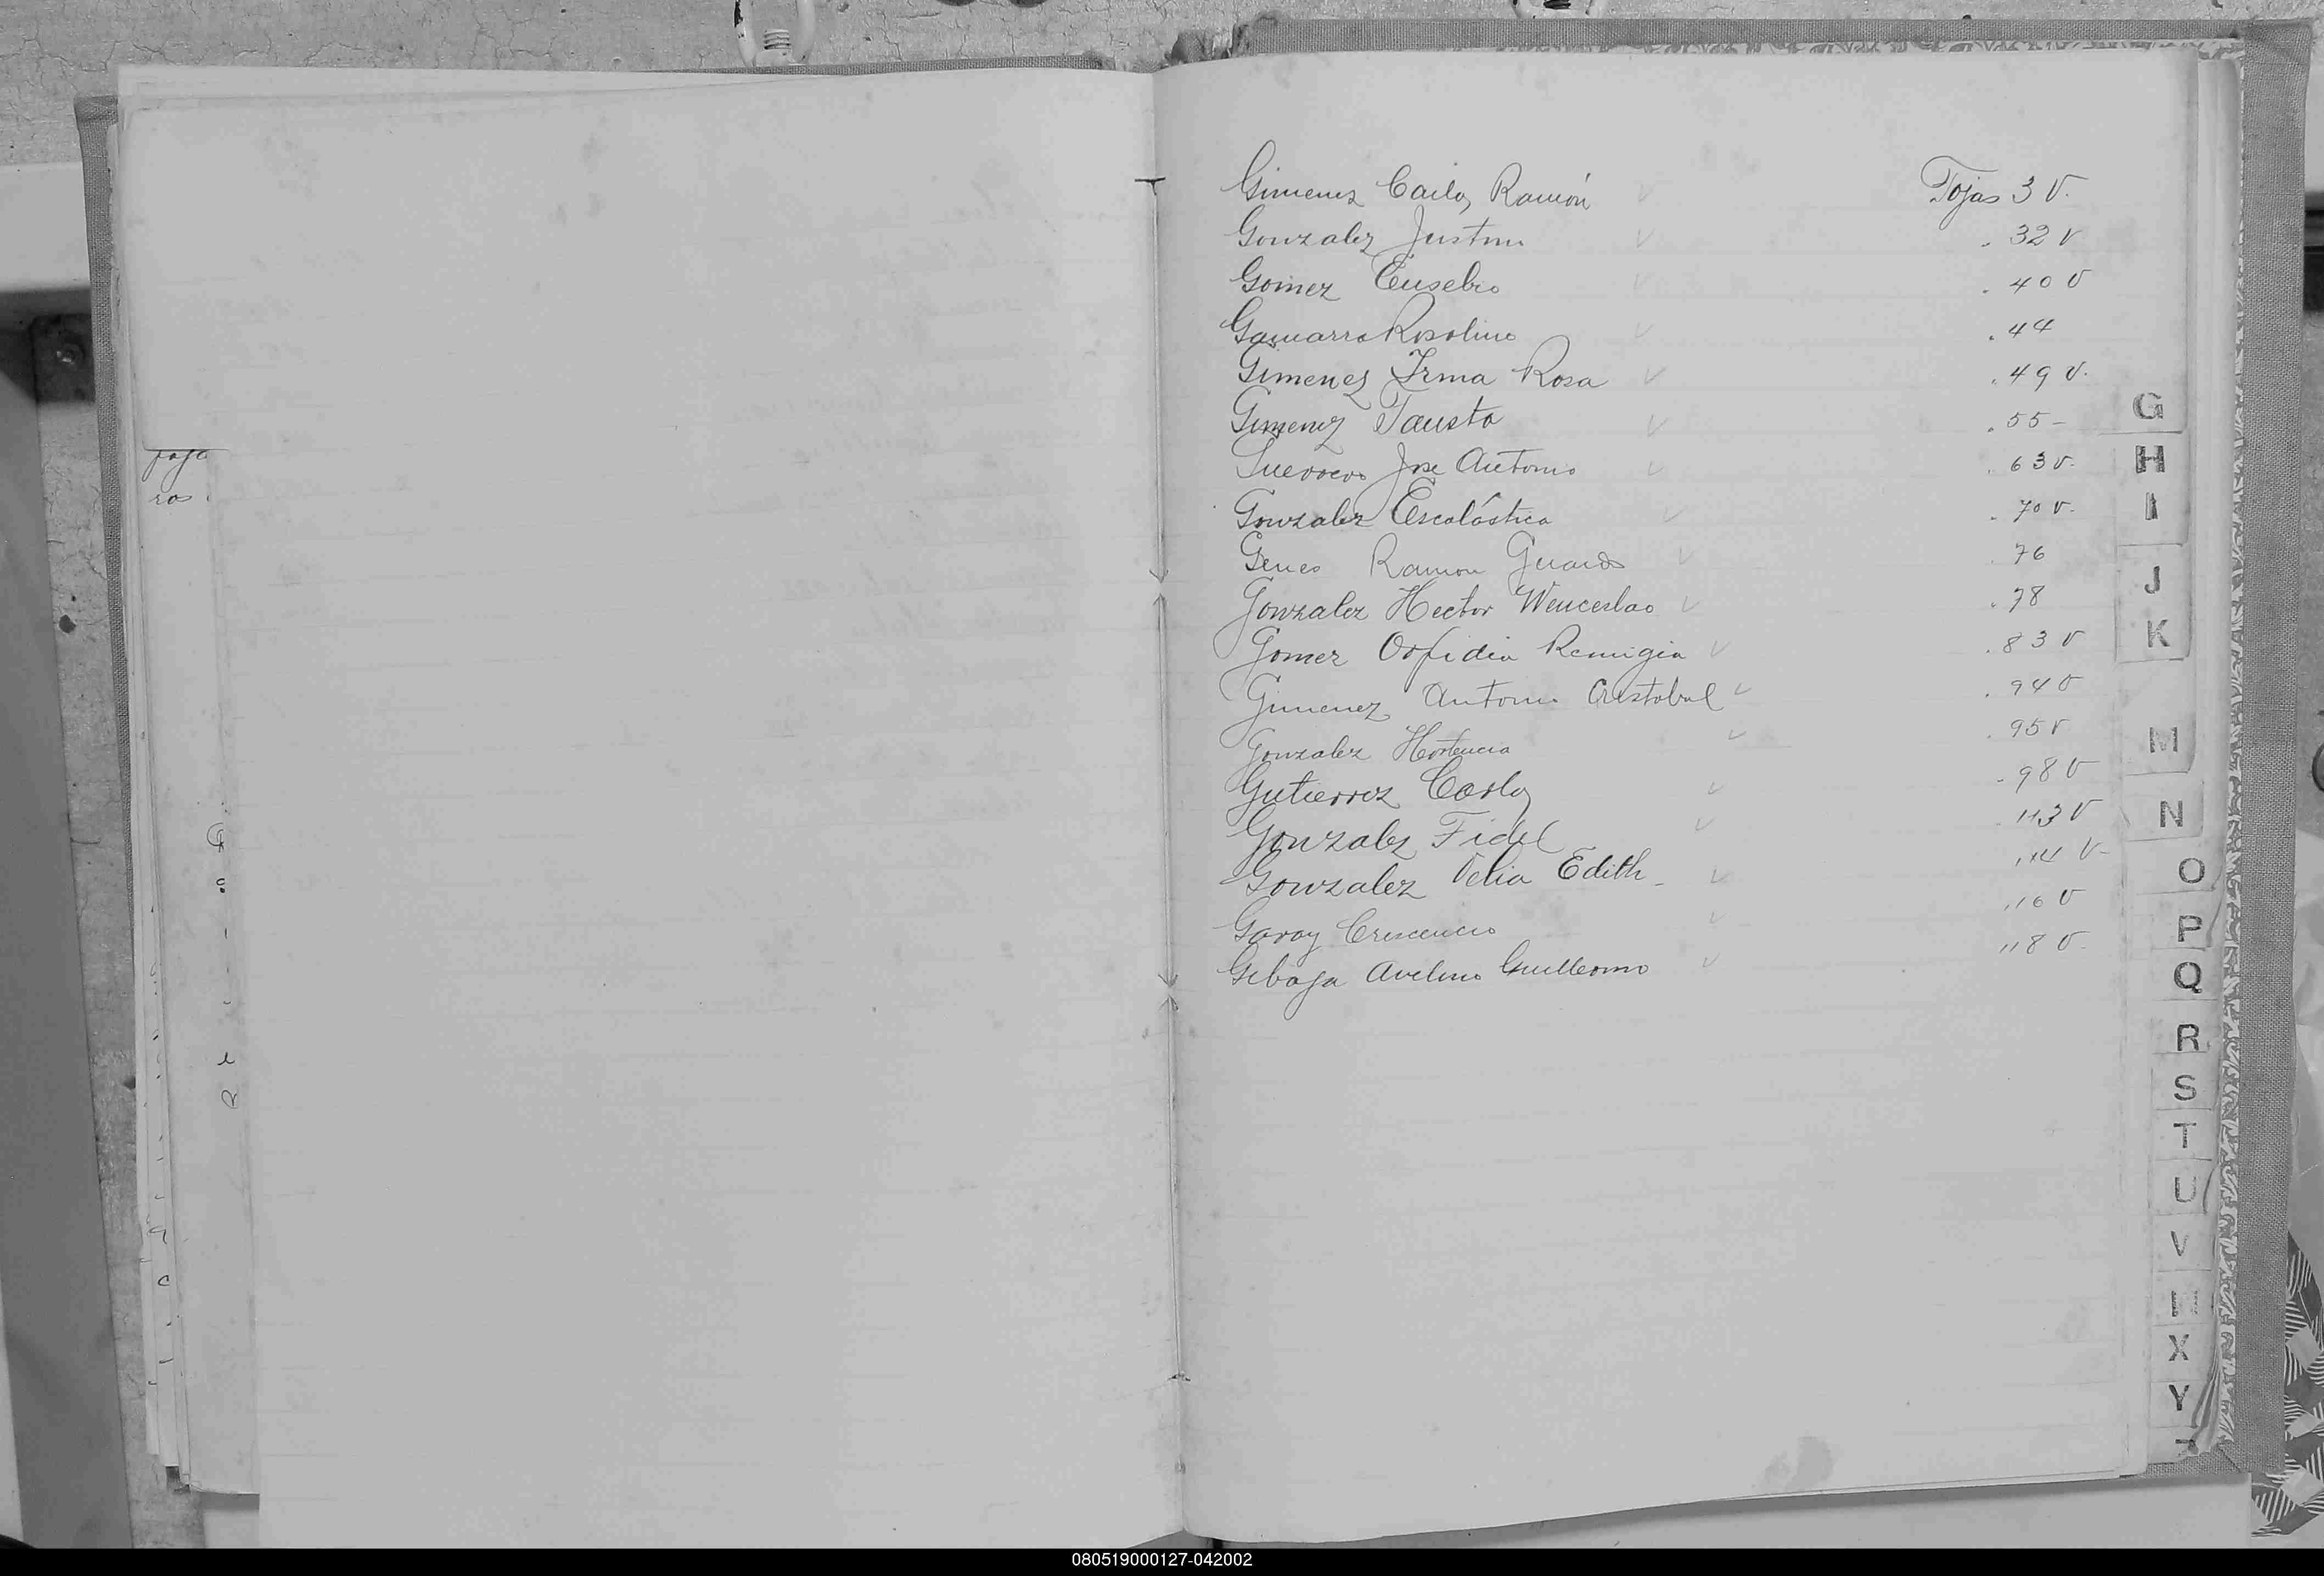 Gimenez Carlos Ramón Fojas 3 v.
Gonzalez Justino . 32 v
Gomez Eusebio . 40 v
Gamarra Rosolino . 44
Gimenez Irma Rosa . 49 v.
Gimenez Fausto . 55 -
Guerrero Jose Antonio . 63 v.
Gonzalez Escolástica . 70 v.
Genes Ramon Gerardo . 76
Gonzalez Hector Wenceslao . 78
Gomez Orfidia Remigia . 83 v
Gimenez Antonio Cristobal . 94 v
Gonzalez Hortencia . 95 v
Gutierrez Carlos - 98 v
Gonzalez Fidel 113 v
Gonzalez Delia Edith - 114 v-
Garay Crescencio 116 v
Gebaja Avelino Guillermo 118 v.
foja
ras
G
H
I
J
K
M
N
O
P
Q
R
S
T
U
V
X
Y
080519000127-042002